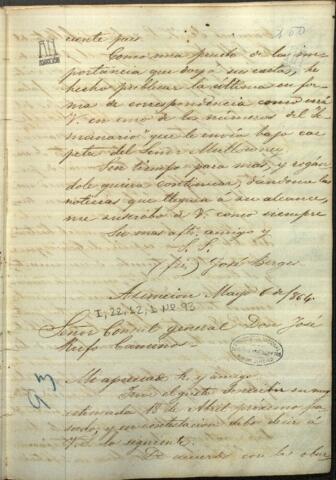 160
ciente pais
Como una prueba de la im-
portancia que doy á sus cartas, he
hecho publicar la última en for-
ma de correspondencia como verá
V. en uno de los numeros del "Se-
manario" que le envio bajo car-
peta del Señor
Sin tiempo para mas, y rogan-
dole quiera continuar, dandome las
noticias que lleguen á su alcance,
me suscribo de V. como siempre
Su mas afto. amigo y
S. S.
(fir) José Berges
Asuncion Mayo 6 de 1864.
I, 22, 12, 1 Nº 93
Señor Consul general Don José
Rufo Caminos
93
Mi apreciado Sr. y amigo
Tuve el gusto de recibir su muy
estimada 18 de Abril próximo pa-
sado, y en contestacion debo decir á
Vd. lo siguiente.
De acuerdo con las